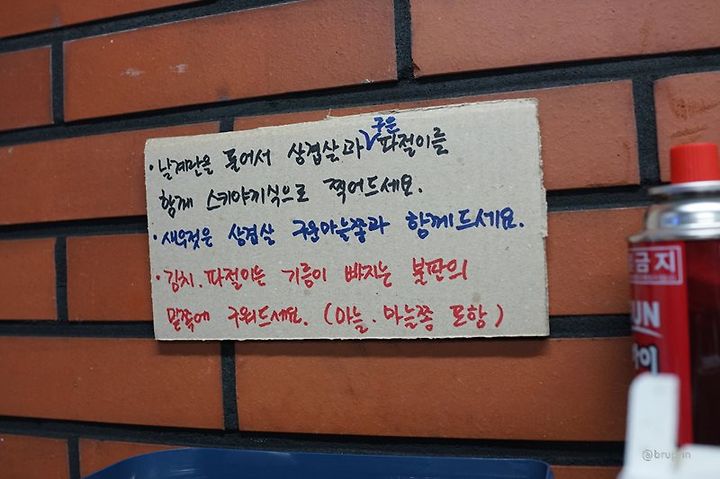 · 날계란을 풀어서 삼겹살과 구운 파절이를
함께 스키야끼식으로 찍어드세요.
· 새우젓은 삼겹살 구운마늘쫑과 함께드세요.
· 김치. 파절이는 기름이 빠지는 불판의
밑쪽에 구워드세요. (마늘. 마늘쫑 포함)
금지
UN
@brupin